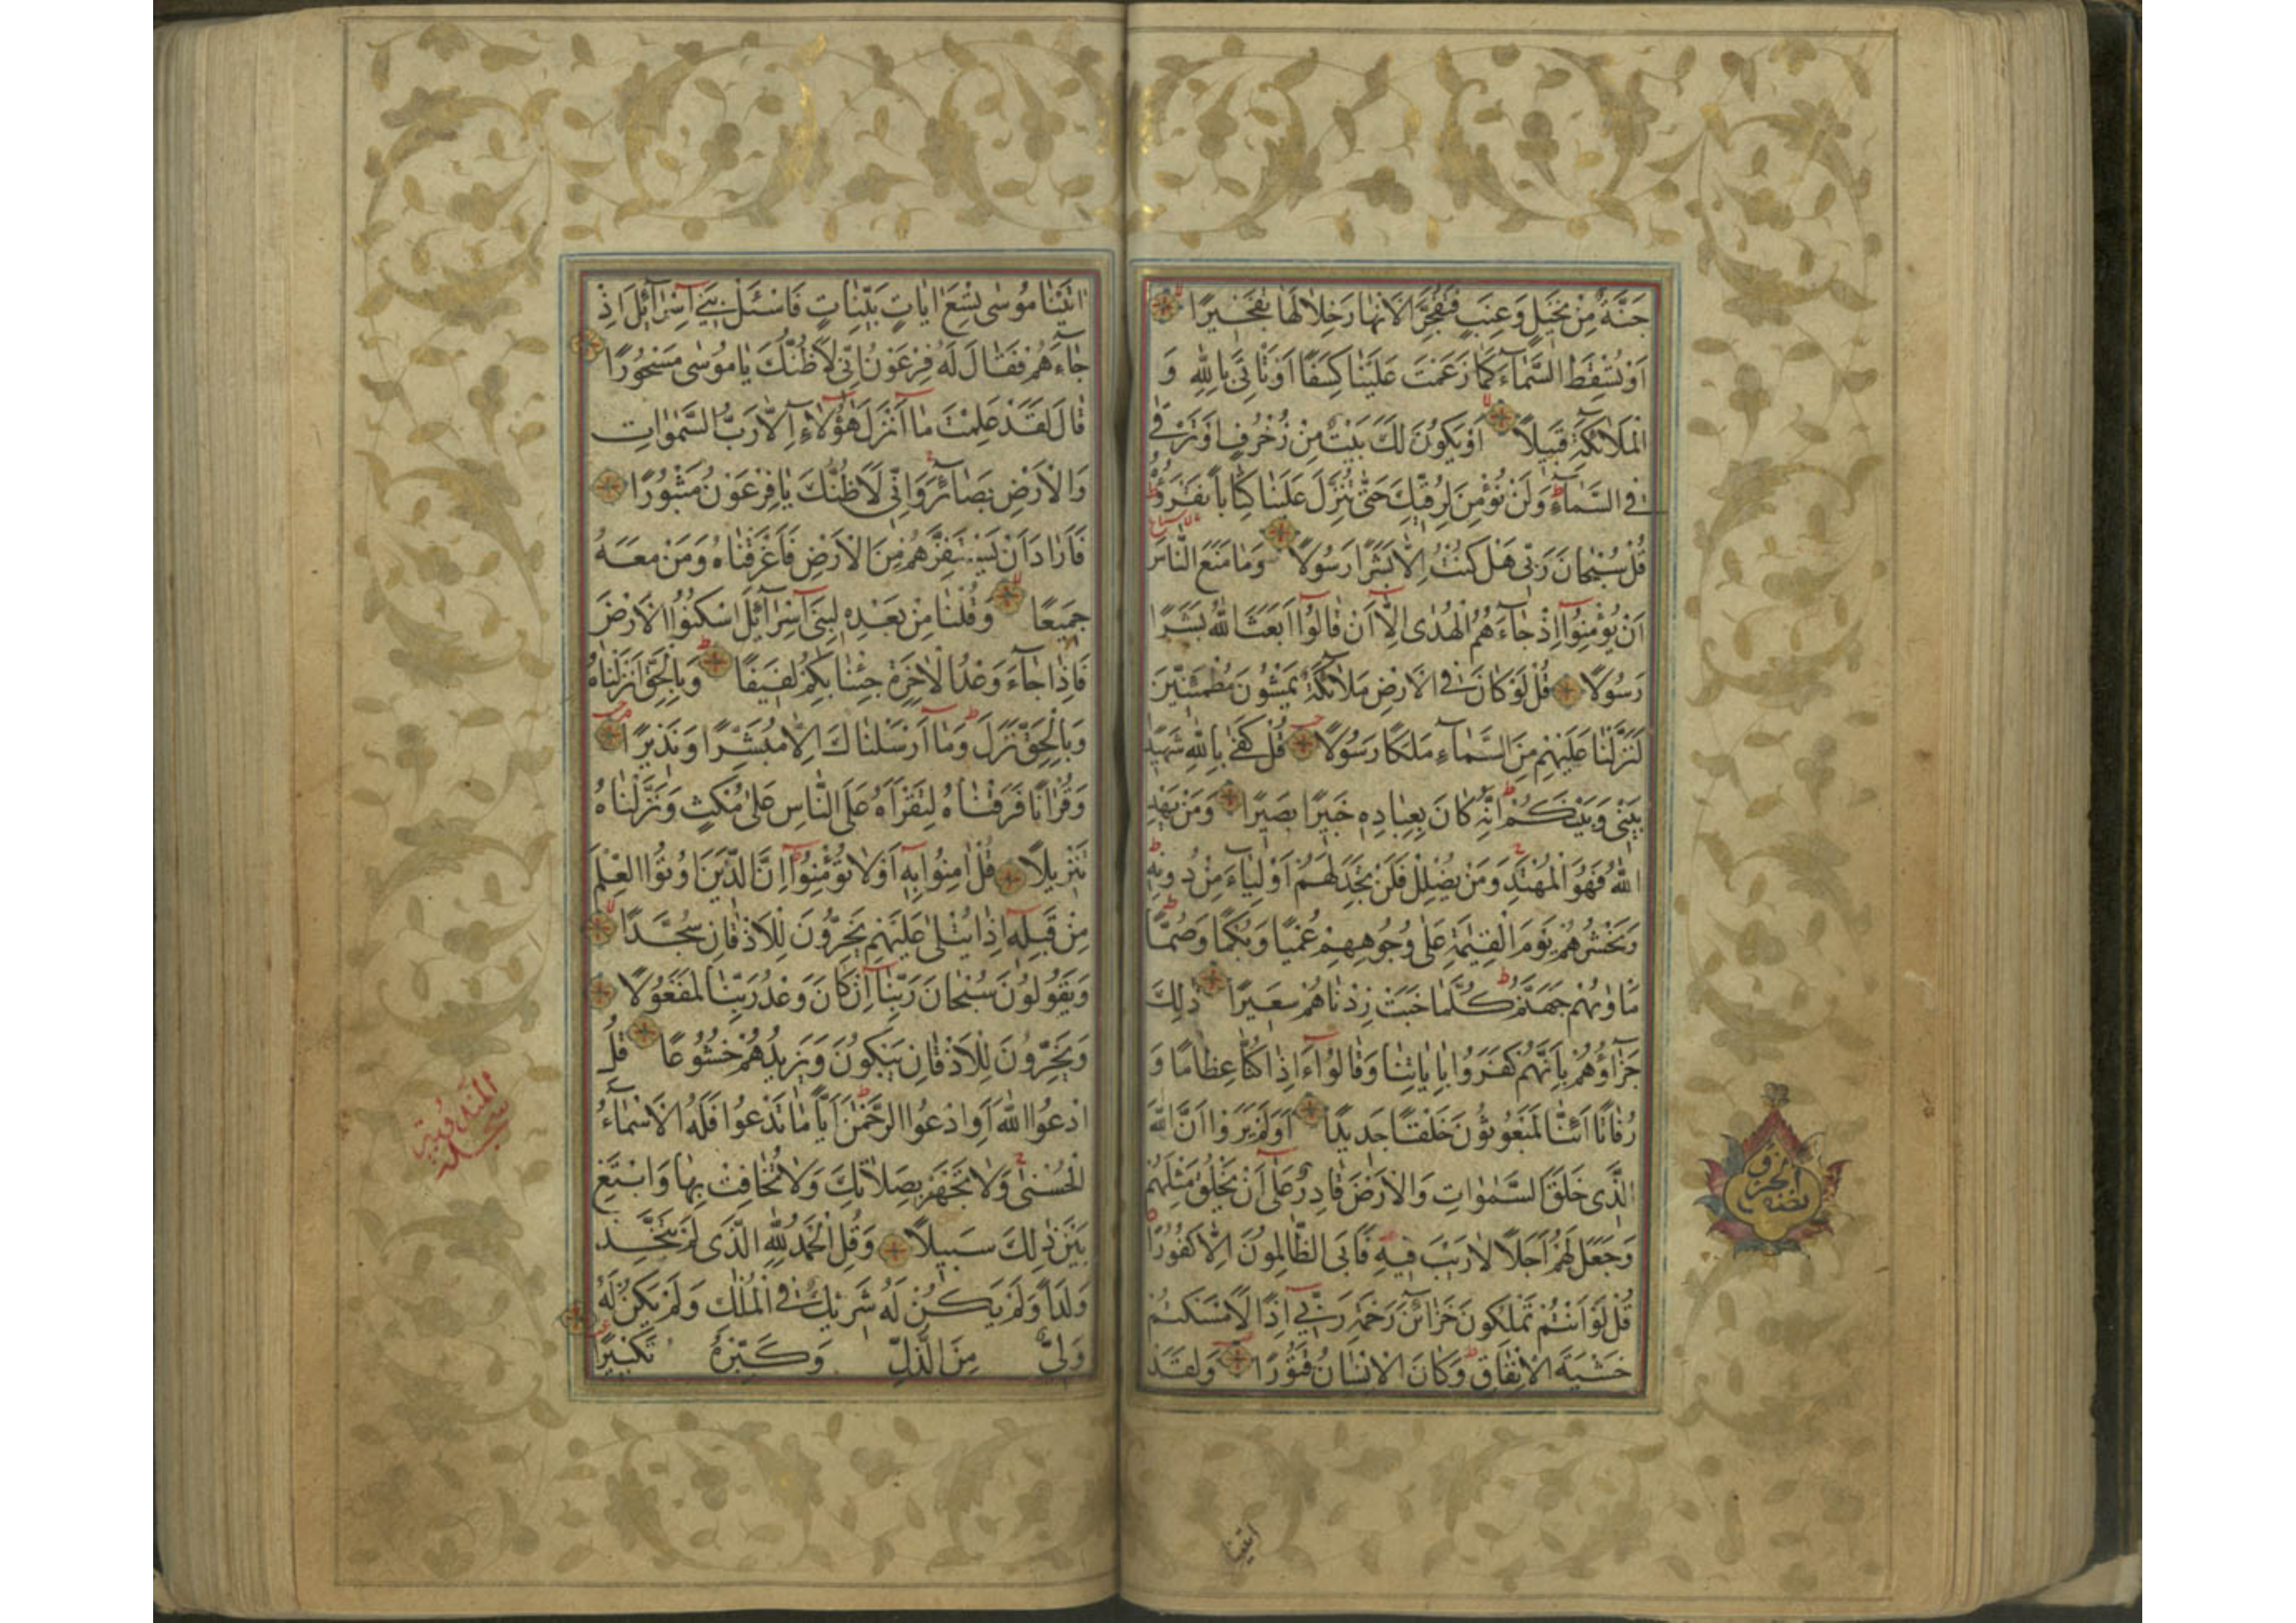 جَنَّةٌ مِنْ نَخِيلٍ وَعِنَبٍ فَتُفَجِّرَ الْاَنْهَارَ خِلَالَهَا تَفْجِيرًا
اَوْ تُسْقِطَ السَّمَآءَ كَمَا زَعَمْتَ عَلَيْنَا كِسَفًا اَوْ تَاْتِيَ بِاللّٰهِ وَ
الْمَلَآئِكَةِ قَبِيلًا اَوْ يَكُونَ لَكَ بَيْتٌ مِنْ زُخْرُفٍ اَوْ تَرْقٰى
فِي السَّمَآءِ وَلَنْ نُؤْمِنَ لِرُقِيِّكَ حَتّٰى تُنَزِّلَ عَلَيْنَا كِتَابًا نَقْرَؤُهُ
قُلْ سُبْحَانَ رَبّٖى هَلْ كُنْتُ اِلَّا بَشَرًا رَسُولًا وَمَا مَنَعَ النَّاسَ
اَنْ يُؤْمِنُوٓا اِذْ جَآءَهُمُ الْهُدٰى اِلَّٓا اَنْ قَالُوٓا اَبَعَثَ اللّٰهُ بَشَرًا
رَسُولًا قُلْ لَوْ كَانَ فِي الْاَرْضِ مَلَآئِكَةٌ يَمْشُونَ مُطْمَئِنّٖينَ
لَنَزَّلْنَا عَلَيْهِمْ مِنَ السَّمَآءِ مَلَكًا رَسُولًا قُلْ كَفٰى بِاللّٰهِ شَهِيدًا
بَيْنٖى وَبَيْنَكُمْ اِنَّهُ كَانَ بِعِبَادِهٖ خَبِيرًا بَصِيرًا وَمَنْ يَهْدِ
اللّٰهُ فَهُوَ الْمُهْتَدِ وَمَنْ يُضْلِلْ فَلَنْ تَجِدَ لَهُمْ اَوْلِيَآءَ مِنْ دُونِهٖ
وَنَحْشُرُهُمْ يَوْمَ الْقِيٰمَةِ عَلٰى وُجُوهِهِمْ عُمْيًا وَبُكْمًا وَصُمًّا
مَاْوٰيهُمْ جَهَنَّمُ كُلَّمَا خَبَتْ زِدْنَاهُمْ سَعِيرًا ذٰلِكَ
جَزَآؤُهُمْ بِاَنَّهُمْ كَفَرُوا بِاٰيَاتِنَا وَقَالُوٓا ءَاِذَا كُنَّا عِظَامًا وَ
رُفَاتًا اَئِنَّا لَمَبْعُوثُونَ خَلْقًا جَدِيدًا اَوَلَمْ يَرَوْا اَنَّ اللّٰهَ
الَّذٖى خَلَقَ السَّمٰوَاتِ وَالْاَرْضَ قَادِرٌ عَلٰٓى اَنْ يَخْلُقَ مِثْلَهُمْ
وَجَعَلَ لَهُمْ اَجَلًا لَا رَيْبَ فِيهِ فَاَبَى الظَّالِمُونَ اِلَّا كُفُورًا
قُلْ لَوْ اَنْتُمْ تَمْلِكُونَ خَزَآئِنَ رَحْمَةِ رَبّٖٓى اِذًا لَاَمْسَكْتُمْ
خَشْيَةَ الْاِنْفَاقِ وَكَانَ الْاِنْسَانُ قَتُورًا وَلَقَدْ
نصف الحزب
اٰتَيْنَا
اٰتَيْنَا مُوسٰى تِسْعَ اٰيَاتٍ بَيِّنَاتٍ فَاسْئَلْ بَنٖٓى اِسْرَآئِلَ اِذْ
جَآءَهُمْ فَقَالَ لَهُ فِرْعَوْنُ اِنّٖى لَاَظُنُّكَ يَا مُوسٰى مَسْحُورًا
قَالَ لَقَدْ عَلِمْتَ مَآ اَنْزَلَ هٰٓؤُلَآءِ اِلَّا رَبُّ السَّمٰوَاتِ
وَالْاَرْضِ بَصَآئِرَ وَاِنّٖى لَاَظُنُّكَ يَا فِرْعَوْنُ مَثْبُورًا
فَاَرَادَ اَنْ يَسْتَفِزَّهُمْ مِنَ الْاَرْضِ فَاَغْرَقْنَاهُ وَمَنْ مَعَهُ
جَمِيعًا وَقُلْنَا مِنْ بَعْدِهٖ لِبَنٖٓى اِسْرَآئِلَ اسْكُنُوا الْاَرْضَ
فَاِذَا جَآءَ وَعْدُ الْاٰخِرَةِ جِئْنَا بِكُمْ لَفِيفًا وَبِالْحَقِّ اَنْزَلْنَاهُ
وَبِالْحَقِّ نَزَلَ وَمَآ اَرْسَلْنَاكَ اِلَّا مُبَشِّرًا وَنَذِيرًا
وَقُرْاٰنًا فَرَقْنَاهُ لِتَقْرَاَهُ عَلَى النَّاسِ عَلٰى مُكْثٍ وَنَزَّلْنَاهُ
تَنْزِيلًا قُلْ اٰمِنُوا بِهٖٓ اَوْ لَا تُؤْمِنُوا اِنَّ الَّذِينَ اُوتُوا الْعِلْمَ
مِنْ قَبْلِهٖٓ اِذَا يُتْلٰى عَلَيْهِمْ يَخِرُّونَ لِلْاَذْقَانِ سُجَّدًا
وَيَقُولُونَ سُبْحَانَ رَبِّنَآ اِنْ كَانَ وَعْدُ رَبِّنَا لَمَفْعُولًا
وَيَخِرُّونَ لِلْاَذْقَانِ يَبْكُونَ وَيَزِيدُهُمْ خُشُوعًا قُلِ
ادْعُوا اللّٰهَ اَوِ ادْعُوا الرَّحْمٰنَ اَيًّا مَا تَدْعُوا فَلَهُ الْاَسْمَآءُ
الْحُسْنٰى وَلَا تَجْهَرْ بِصَلَاتِكَ وَلَا تُخَافِتْ بِهَا وَابْتَغِ
بَيْنَ ذٰلِكَ سَبِيلًا وَقُلِ الْحَمْدُ لِلّٰهِ الَّذٖى لَمْ يَتَّخِذْ
وَلَدًا وَلَمْ يَكُنْ لَهُ شَرِيكٌ فِي الْمُلْكِ وَلَمْ يَكُنْ لَهُ
وَلِيٌّ مِنَ الذُّلِّ وَكَبِّرْهُ تَكْبِيرًا